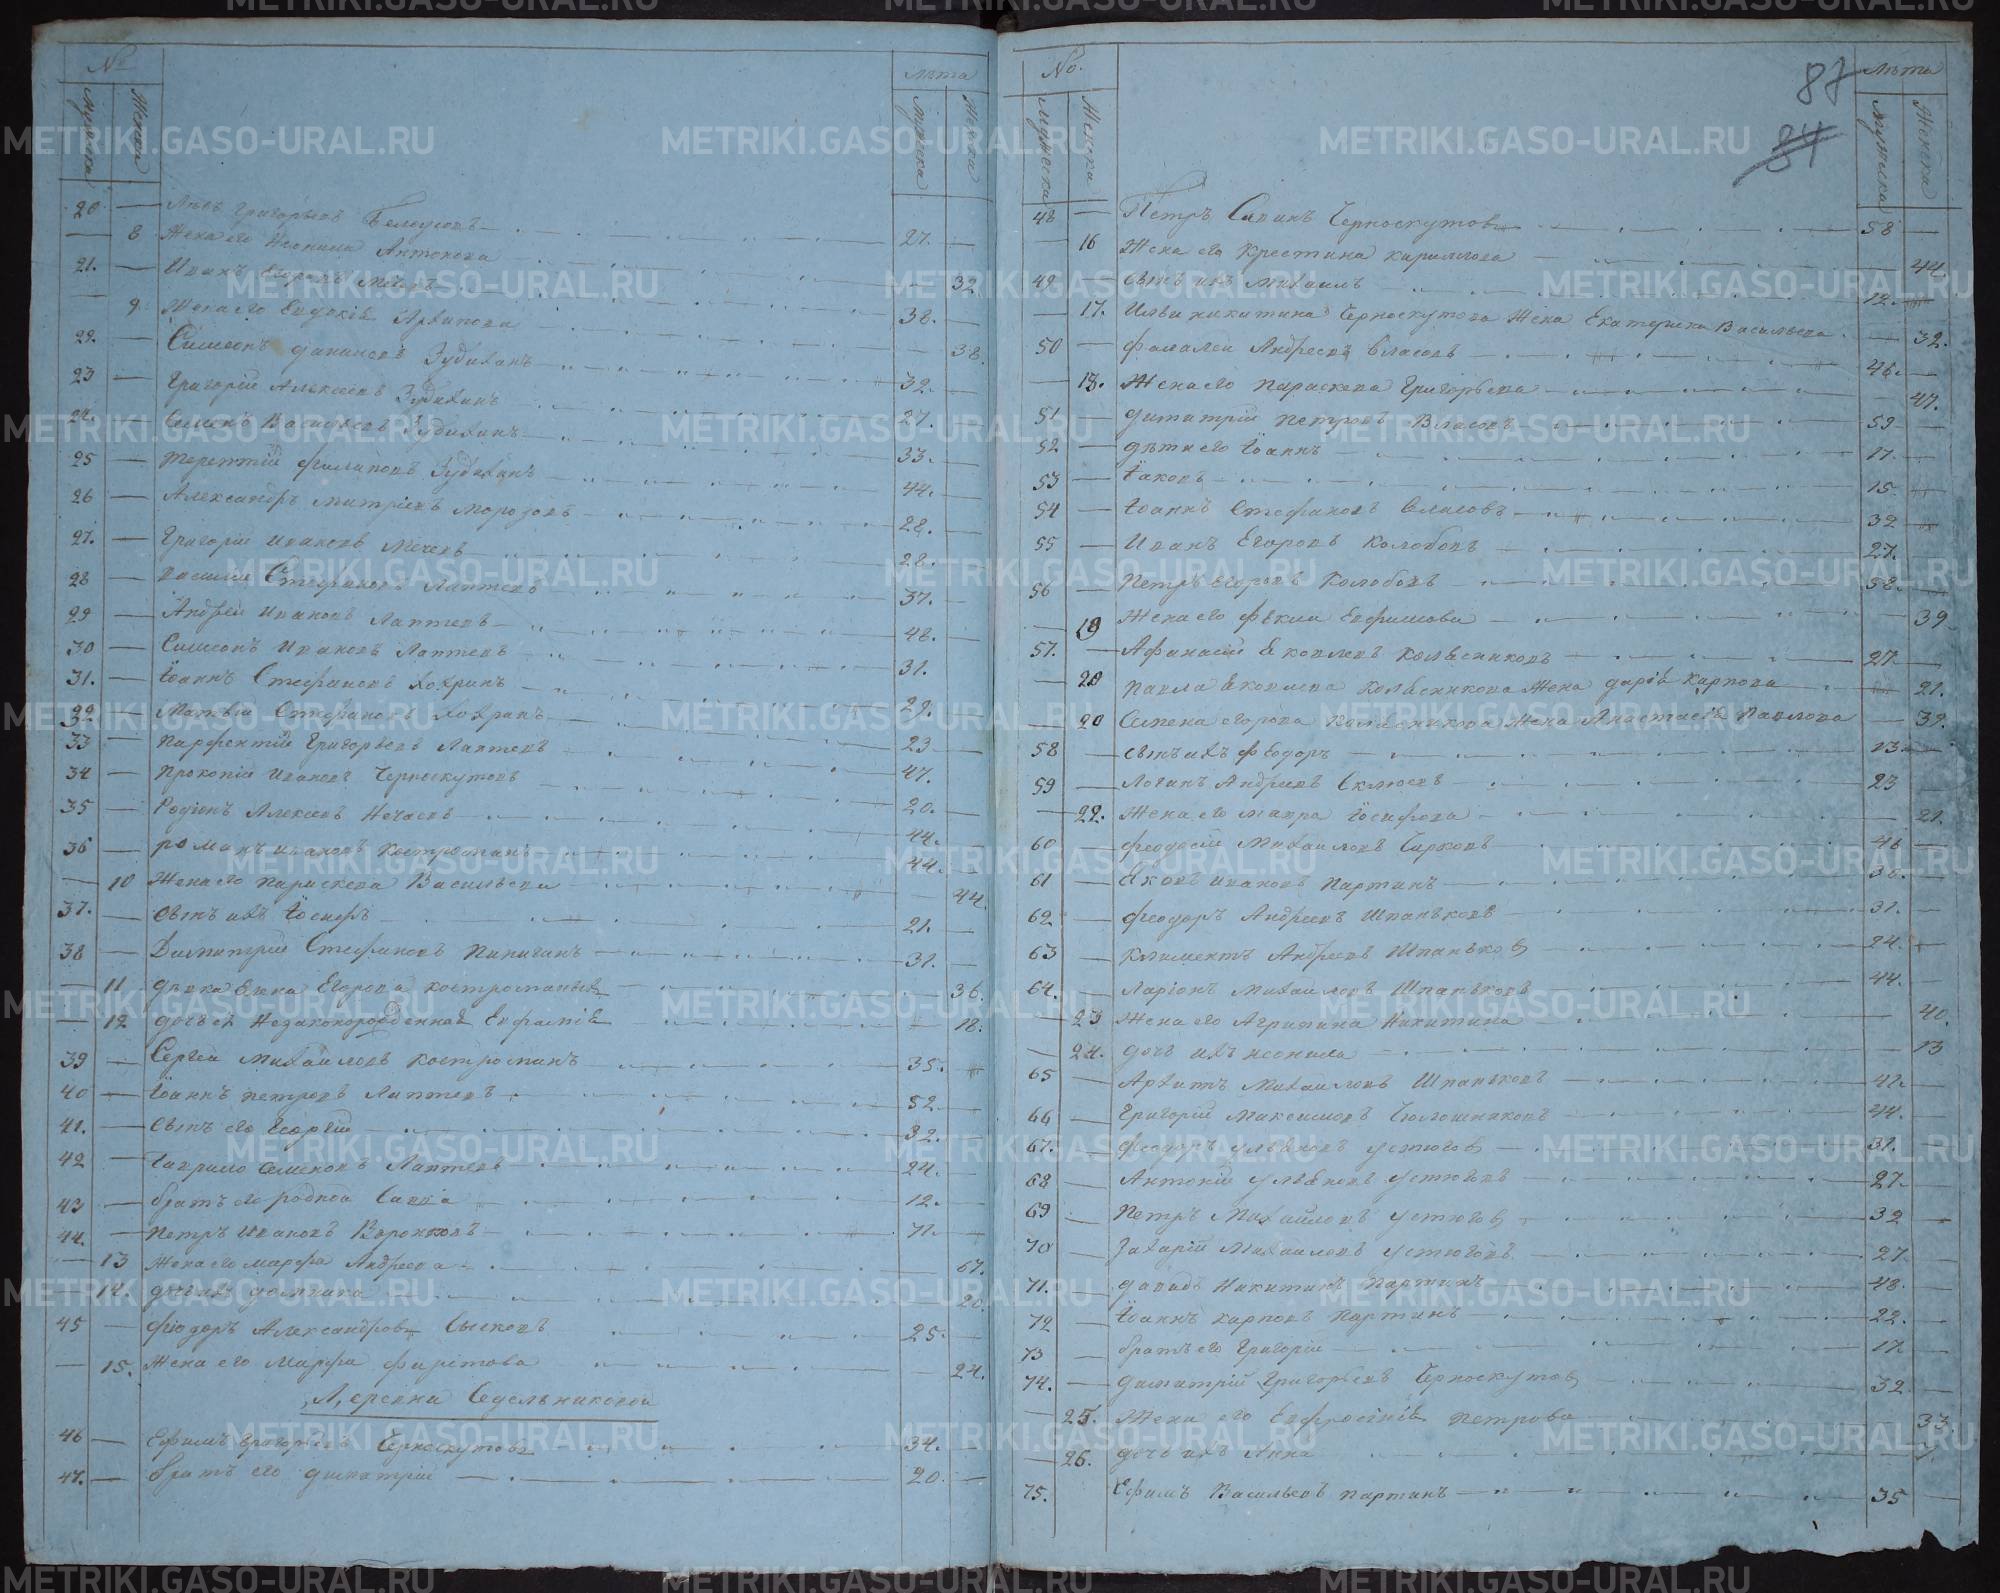 №
Мужеска Женска
Лѣта
Мужеска Женска
20. — Левъ Григорьевъ Белоусовъ — 27. —
— 8 Жена его Неонила Антонова — 32
21. — Иванъ Егоровъ — 38. —
— 9 Жена его Евдокія Архипова — 38.
22. — Симеонъ Зудихинъ — 32. —
23 — Григорій Алексеевъ Зудихинъ — 27. —
24. — Семенъ Васильевъ Зудихинъ — 33. —
25 — Терентій Филиповъ Зудихинъ — 44. —
26 — Александръ Митріевъ Морозовъ — 28. —
27. — Григорій Ивановъ Мечевъ — 28. —
28 — Василей Стефановъ Лаптевъ — 37. —
29 — Андрей Ивановъ Лаптевъ — 48. —
30 — Симеонъ Ивановъ Лаптевъ — 31. —
31. — Іоаннъ Стефановъ Хохринъ — 29. —
32. — Матвій Стефановъ Хохринъ — 23 —
33 — Парфентій Григорьевъ Лаптевъ — 47. —
34 — Прокопій Ивановъ Черноскутовъ — 20. —
35 — Родіонъ Алексеевъ Нечаевъ — 44. —
36 — Романъ Ивановъ Костромин — 44. —
— 10 Жена его Параскева Васильева — 44.
37. — Сынъ ихъ Іосифъ — 21. —
38 — Димитрій Стефановъ Пинигинъ — 31. —
— 11 Девка Егорова — 36.
— 12 Дочь ей Незаконорожденная Евфимія — 18.
39 — Сергей Михайловъ Костроминъ — 35. —
40 — Іоаннъ Петровъ Лаптевъ — 52. —
41. — Сынъ его Георгій — 32. —
42 — Гаврило Семеновъ Лаптевъ — 24. —
43 — Братъ его родной Савва — 12. —
44. — Петръ Ивановъ Воронковъ — 71. —
— 13 Жена его Марфа Андреева — 67.
— 14. Дочь ихъ Домника — 20
45 — Феодоръ Александровъ Сысковъ — 25. —
— 15. Жена его Марфа — 24.
Деревни Седельниковой
46 — Ефимъ Григорьевъ Черноскутовъ — 34. —
47. — Братъ его Димитрій — 20. —
№.
Мужеска Женска
87
84
Лѣта
Мужеска Женска
48 — Петръ Савинъ Черноскутовъ — 58 —
— 16 Жена его Крестина Кирилова — 44.
49 — Сынъ ихъ Михаилъ — 12. —
— 17. Ильи Никитина Черноскутова Жена Екатерина Васильева — 32.
50 — Фалалей Андреевъ Власовъ — 46. —
— 18. Жена его Параскева Григорьева — 47.
51 — Димитрій Петровъ Власовъ — 59 —
52 — Дѣти его Іоаннъ — 17. —
53 — Іаковъ — 15. —
54 — Іоаннъ Стефановъ Власовъ — 32 —
55 — Иванъ Егоровъ Колобовъ — 27. —
56 — Петръ Егоровъ Колобовъ — 58. —
— 19 Жена его Фекла Евфимова — 39
57. — Афанасій Яковлевъ Колесниковъ — 27. —
— 20 Павла Яковлева Колесникова Жена Дарія Карпова — 21.
— 20 Семена Егорова Колесникова Жена Анастасія Павлова — 39.
58 — Сынъ ихъ Феодоръ — 13. —
59 — Логинъ Андреевъ Склюевъ — 23 —
— 22. Жена его Мавра Іосифова — 21.
60 — Феодосій Михайловъ Чирковъ — 46 —
61 — Яковъ Ивановъ Партинъ — 30. —
62 — Феодоръ Андреевъ Шпаньковъ — 31. —
63 — Климентъ Андреевъ Шпаньковъ — 24. —
64. — Ларіонъ Михайловъ Шпаньковъ — 44. —
— 23 Жена его Агрипина Никитина — 40.
— 24. Дочь ихъ Неонила — 13
65 — Архипъ Михайловъ Шпаньковъ — 42. —
66 — Григорій Максимовъ — 44. —
67. — Феодоръ Ульяновъ Устюговъ — 31. —
68 — Антоній Ульяновъ Устюговъ — 27. —
69 — Петръ Михайловъ Устюговъ — 32 —
70 — Захарій Михайловъ Устюговъ — 27. —
71. — Давидъ Никитинъ Партинъ — 48. —
72 — Іоаннъ Карповъ Партинъ — 22. —
73 — Братъ его Григорій — 17 —
74. — Димитрій Григорьевъ Черноскутовъ — 32 —
— 25. Жена его Евфросинія Петрова — 33
— 26. Дочь ихъ Анна — 7.
75. Ефимъ Васильевъ Партинъ — 35 —
METRIKI.GASO-URAL.RU